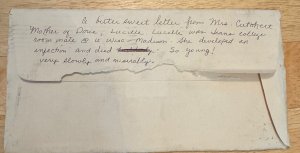 A bitter sweet letter from Mrs Cuthbert
Mother of Doris, Lucille Lucille was Jeans college
room mate @ U Wisc - Madison. She developed an
infection and died suddenly. So young!
very slowly and miserably.